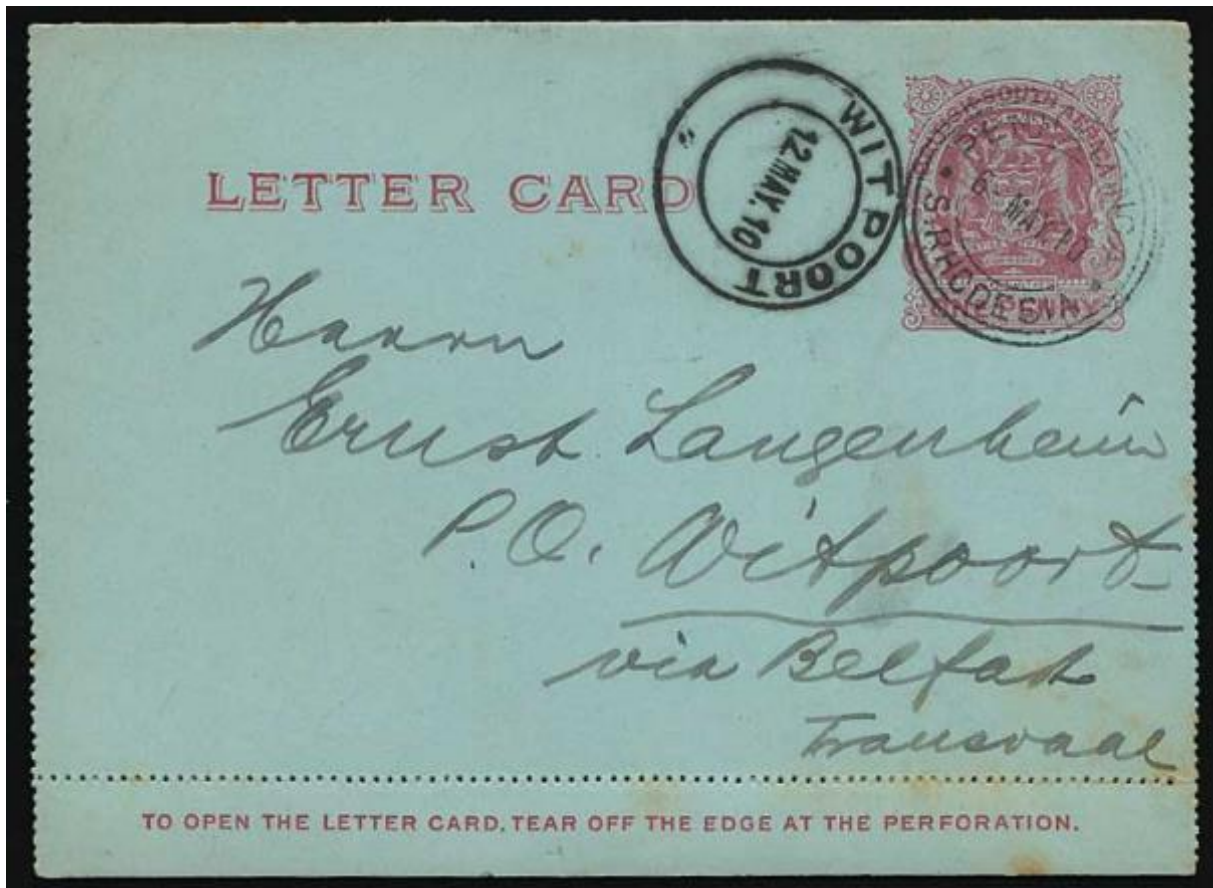 LETTER CARD
WITPOORT
12 MAY. 10
BRITISH SOUTH AFRICA
6 MAY 10
S. RHODESIA
ONE PENNY
Herrn
Ernst Langenheim
P.O. Witpoort
via Belfast
Transvaal
TO OPEN THE LETTER CARD, TEAR OFF THE EDGE AT THE PERFORATION.